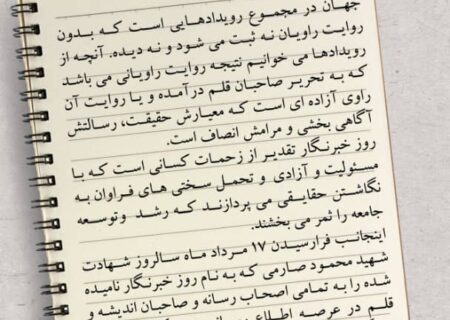 جهان در مجموع رویدادهایی است که بدون
روایت راویان نه ثبت می شود و نه دیده. آنچه از
رویدادها می خوانیم نتیجه روایت راویانی می باشد
که به تحریر صاحبان قلم درآمده و یا روایت آن
راوی آزاده ای است که معیارش حقیقت، رسالتش
آگاهی بخشی و مرامش انصاف است.
روز خبرنگار تقدیر از زحمات کسانی است که با
مسئولیت و آزادی و تحمل سختی های فراوان به
نگاشتن حقایقی می پردازند که رشد وتوسعه
جامعه را ثمر می بخشند.
اینجانب فرارسیدن ۱۷ مرداد ماه سالروز شهادت
شهید محمود صارمی که به نام روز خبرنگار نامیده
شده را به تمامی اصحاب رسانه و صاحبان اندیشه و
قلم در عرصه اطلاع